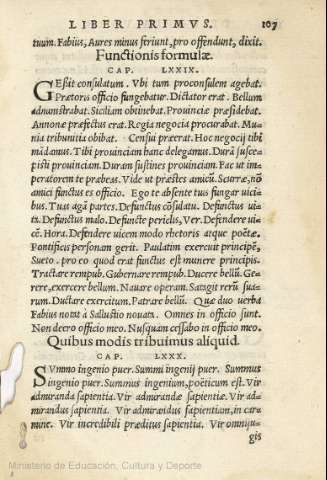 LIBER PRIMVS. 107
tuum. Fabius, Aures minus feriunt, pro offendunt, dixit.
Functionis formulæ.
CAP. LXXIX.
GEßit consulatum. Vbi tum proconsulem agebat.
Prætoris officio fungebatur. Dictator erat. Bellum
administrabat. Siciliam obtinebat. Prouinciæ præsidebat.
Annonæ præfectus erat. Regia negocia procurabat. Mu
nia tribunitia obibat. Censui præerat. Hoc negocij tibi
mãdamus. Tibi prouinciam hanc delegamus. Durã susce
pisti prouinciam. Duram sustines prouinciam. Fac ut im
peratorem te præbeas. Vide ut præstes amicũ. Scurræ, nõ
amici functus es officio. Ego te absente tuis fungar uici
bus. Tuas agã partes. Defunctus cõsulatu. Defunctus ui
ta. Defunctus malo. Defuncte periclis, Ver. Defendere ui
cẽ. Hora. Defendere uicem modo rhetoris atque poëtæ.
Pontificis personam gerit. Paulatim exercuit principẽ,
Sueto. pro eo quod erat functus est munere principis.
Tractare rempub. Gubernare rempub. Ducere bellũ. Ge-
rere, exercere bellum. Nauare operam. Satagit rerũ sua-
rum. Ductare exercitum. Patrare bellũ. Quæ duo uerba
Fabius notat à Sallustio nouata. Omnes in officio sunt.
Non deero officio meo. Nusquam cessabo in officio meo.
Quibus modis tribuimus aliquid.
CAP. LXXX.
SVmmo ingenio puer. Summi ingenij puer. Summus
ingenio puer. Summus ingenium, poëticum est. Vir
admiranda sapientia. Vir admirandæ sapientiæ. Vir ad-
mirandus sapientia. Vir admirandus sapientiam, in car-
mine. Vir incredibili præditus sapientia. Vir omniju-
gis
Ministerio de Educación, Cultura y Deporte